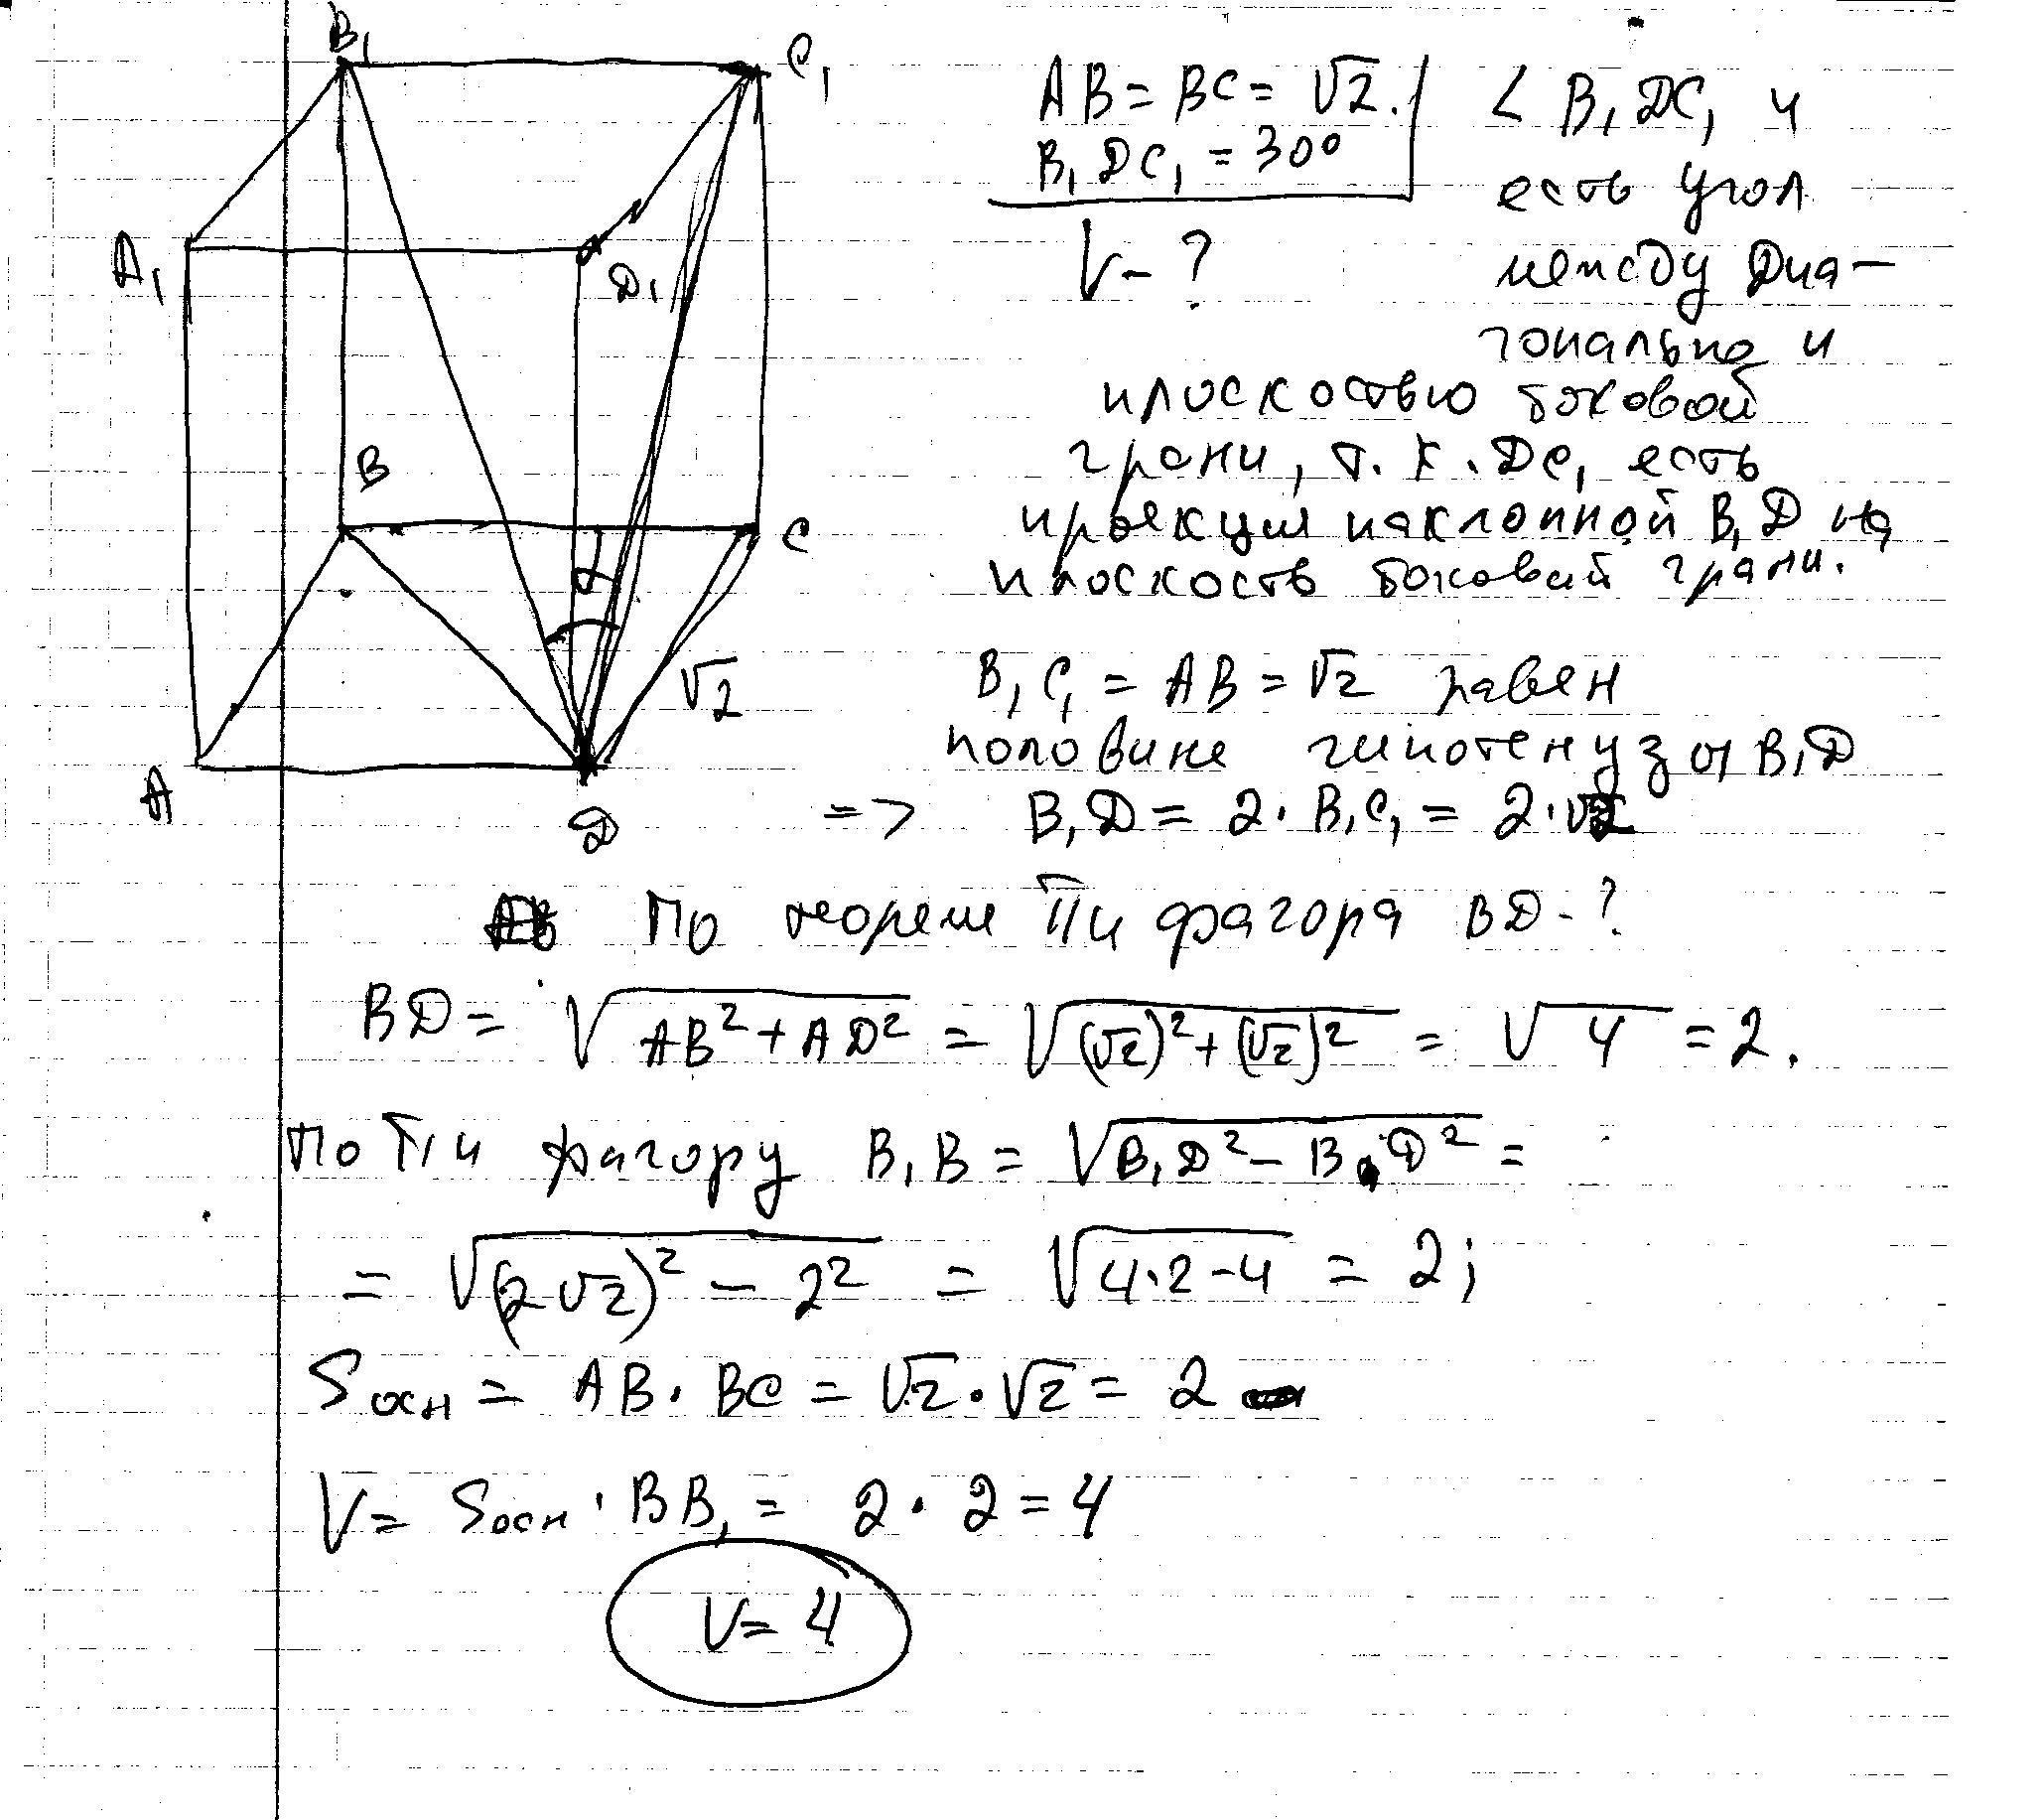 B₁
C₁
A₁
D₁
B
C
√2
A
D
AB = BC = √2.
B₁DC₁ = 30°
V - ?
∠ B₁DC₁ и
есть угол
между диа-
гональю и
плоскостью боковой
грани, т.к. DC₁ есть
проекция наклонной B₁D на
плоскость боковой грани.
B₁C₁ = AB = √2 равен
половине гипотенузы B₁D
=> B₁D = 2 · B₁C₁ = 2 · √2
По теореме Пифагора BD - ?
BD = √(AB² + AD²) = √((√2)² + (√2)²) = √4 = 2.
По Пифагору B₁B = √(B₁D² - BD²) =
= √((2√2)² - 2²) = √(4·2-4) = 2;
Sосн = AB · BC = √2 · √2 = 2
V = Sосн · BB₁ = 2 · 2 = 4
V = 4